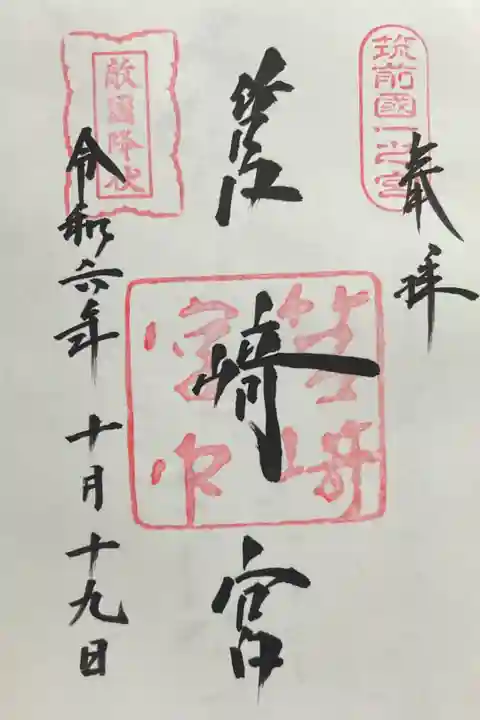 筑前國一之宮
奉拝
筥崎宮
筥崎宮印
敵國降伏
令和六年 十月十九日